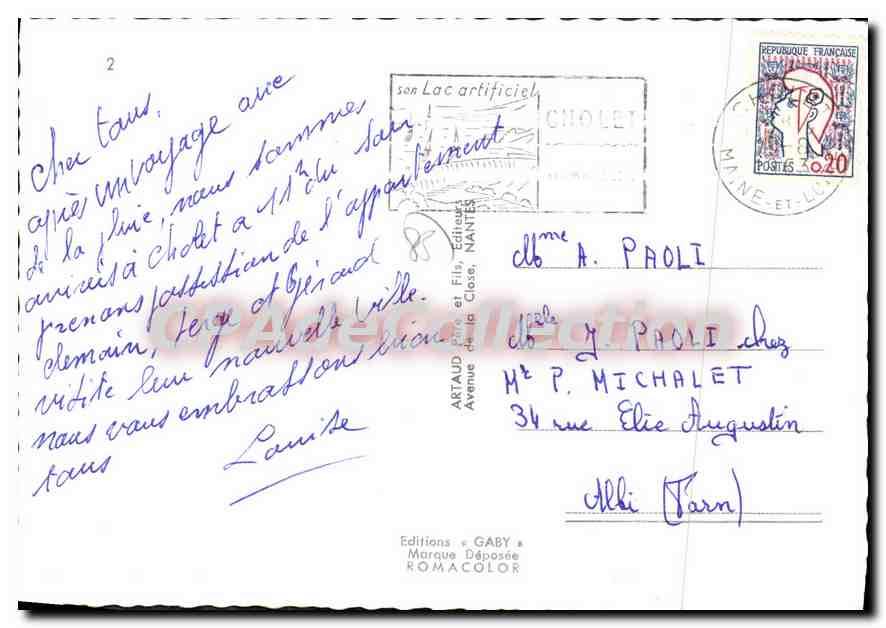 2
Cher tous,
après un voyage avec
de la pluie, nous sommes
arrivés à Cholet à 11h du soir
prenons possession de l'appartement
demain, Serge et Gérard
visite leur nouvelle ville.
nous vous embrassons bien
tous
Louise
85
son Lac artificiel
CHOLET
MAINE-ET-LOIRE
REPUBLIQUE FRANÇAISE
POSTES 0,20
ARTAUD Père et Fils, Editeurs
Avenue de la Close, NANTES
Mme A. PAOLI
Melle J. PAOLI chez
Mr P. MICHALET
34 rue Elie Augustin
Albi (Tarn)
Editions « GABY »
Marque Déposée
ROMACOLOR
CPAdeCollection